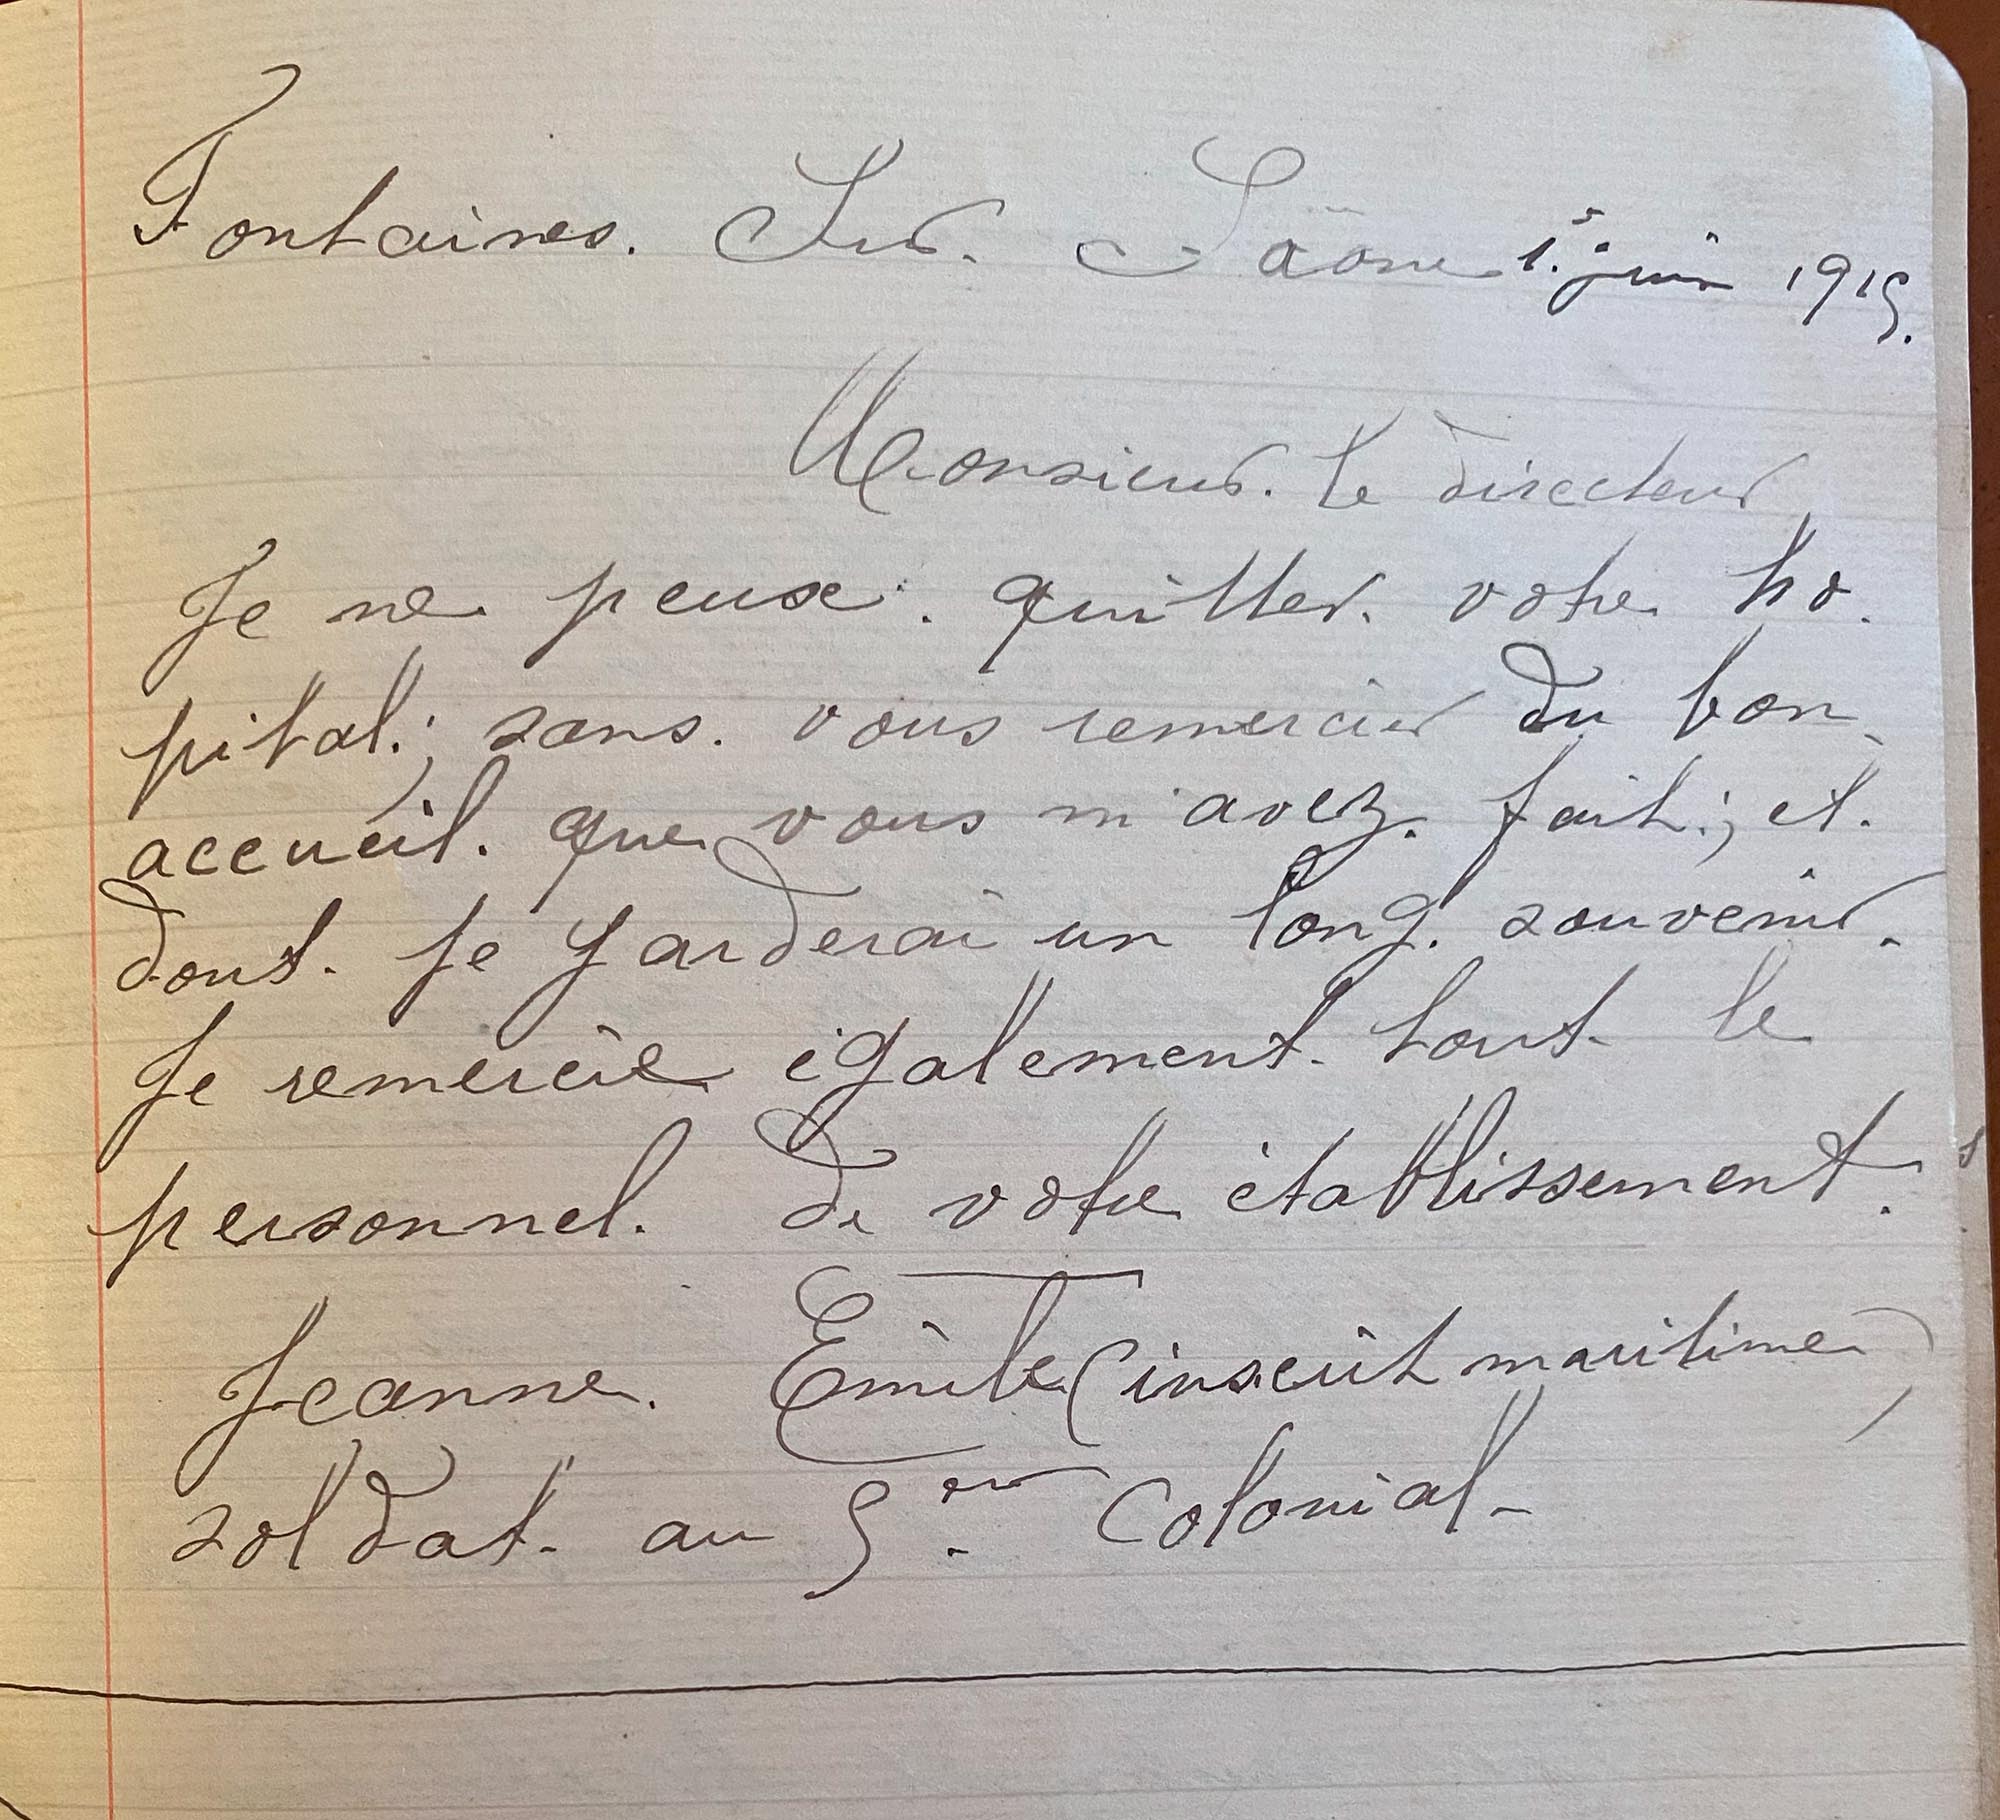 Fontaines. Sur. Saône 1er juin 1915.
Monsieur. le directeur
Je ne peux. quitter. votre ho.
pital.; sans. vous remercier du bon.
accueil. que vous m'avez. fait.; et.
dont. je garderai un long. souvenir.
Je remercie également. tout. le
personnel. de votre établissement.
Jeanne. Emile (inscrit maritime)
soldat. au 5em colonial-